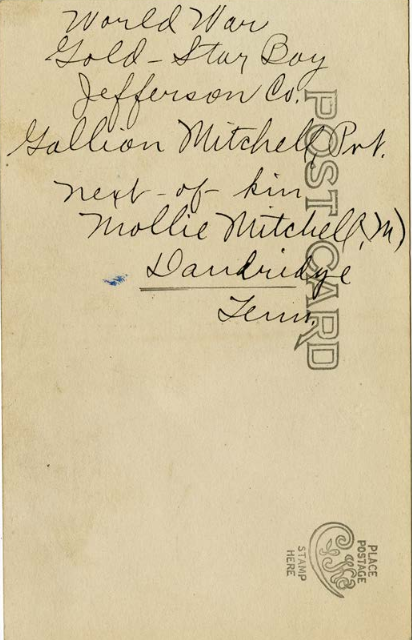 World War
Gold-Star Boy
Jefferson Co.
Gallion Mitchell, Pvt.
next-of-kin
Mollie Mitchell, (M)
Dandridge
Tenn.
POST CARD
PLACE
POSTAGE
STAMP
HERE